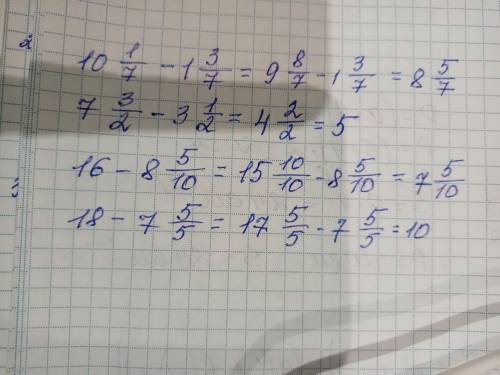 2
10 1/7 - 1 3/7 = 9 8/7 - 1 3/7 = 8 5/7
7 3/2 - 3 1/2 = 4 2/2 = 5
16 - 8 5/10 = 15 10/10 - 8 5/10 = 7 5/10
18 - 7 5/5 = 17 5/5 - 7 5/5 = 10